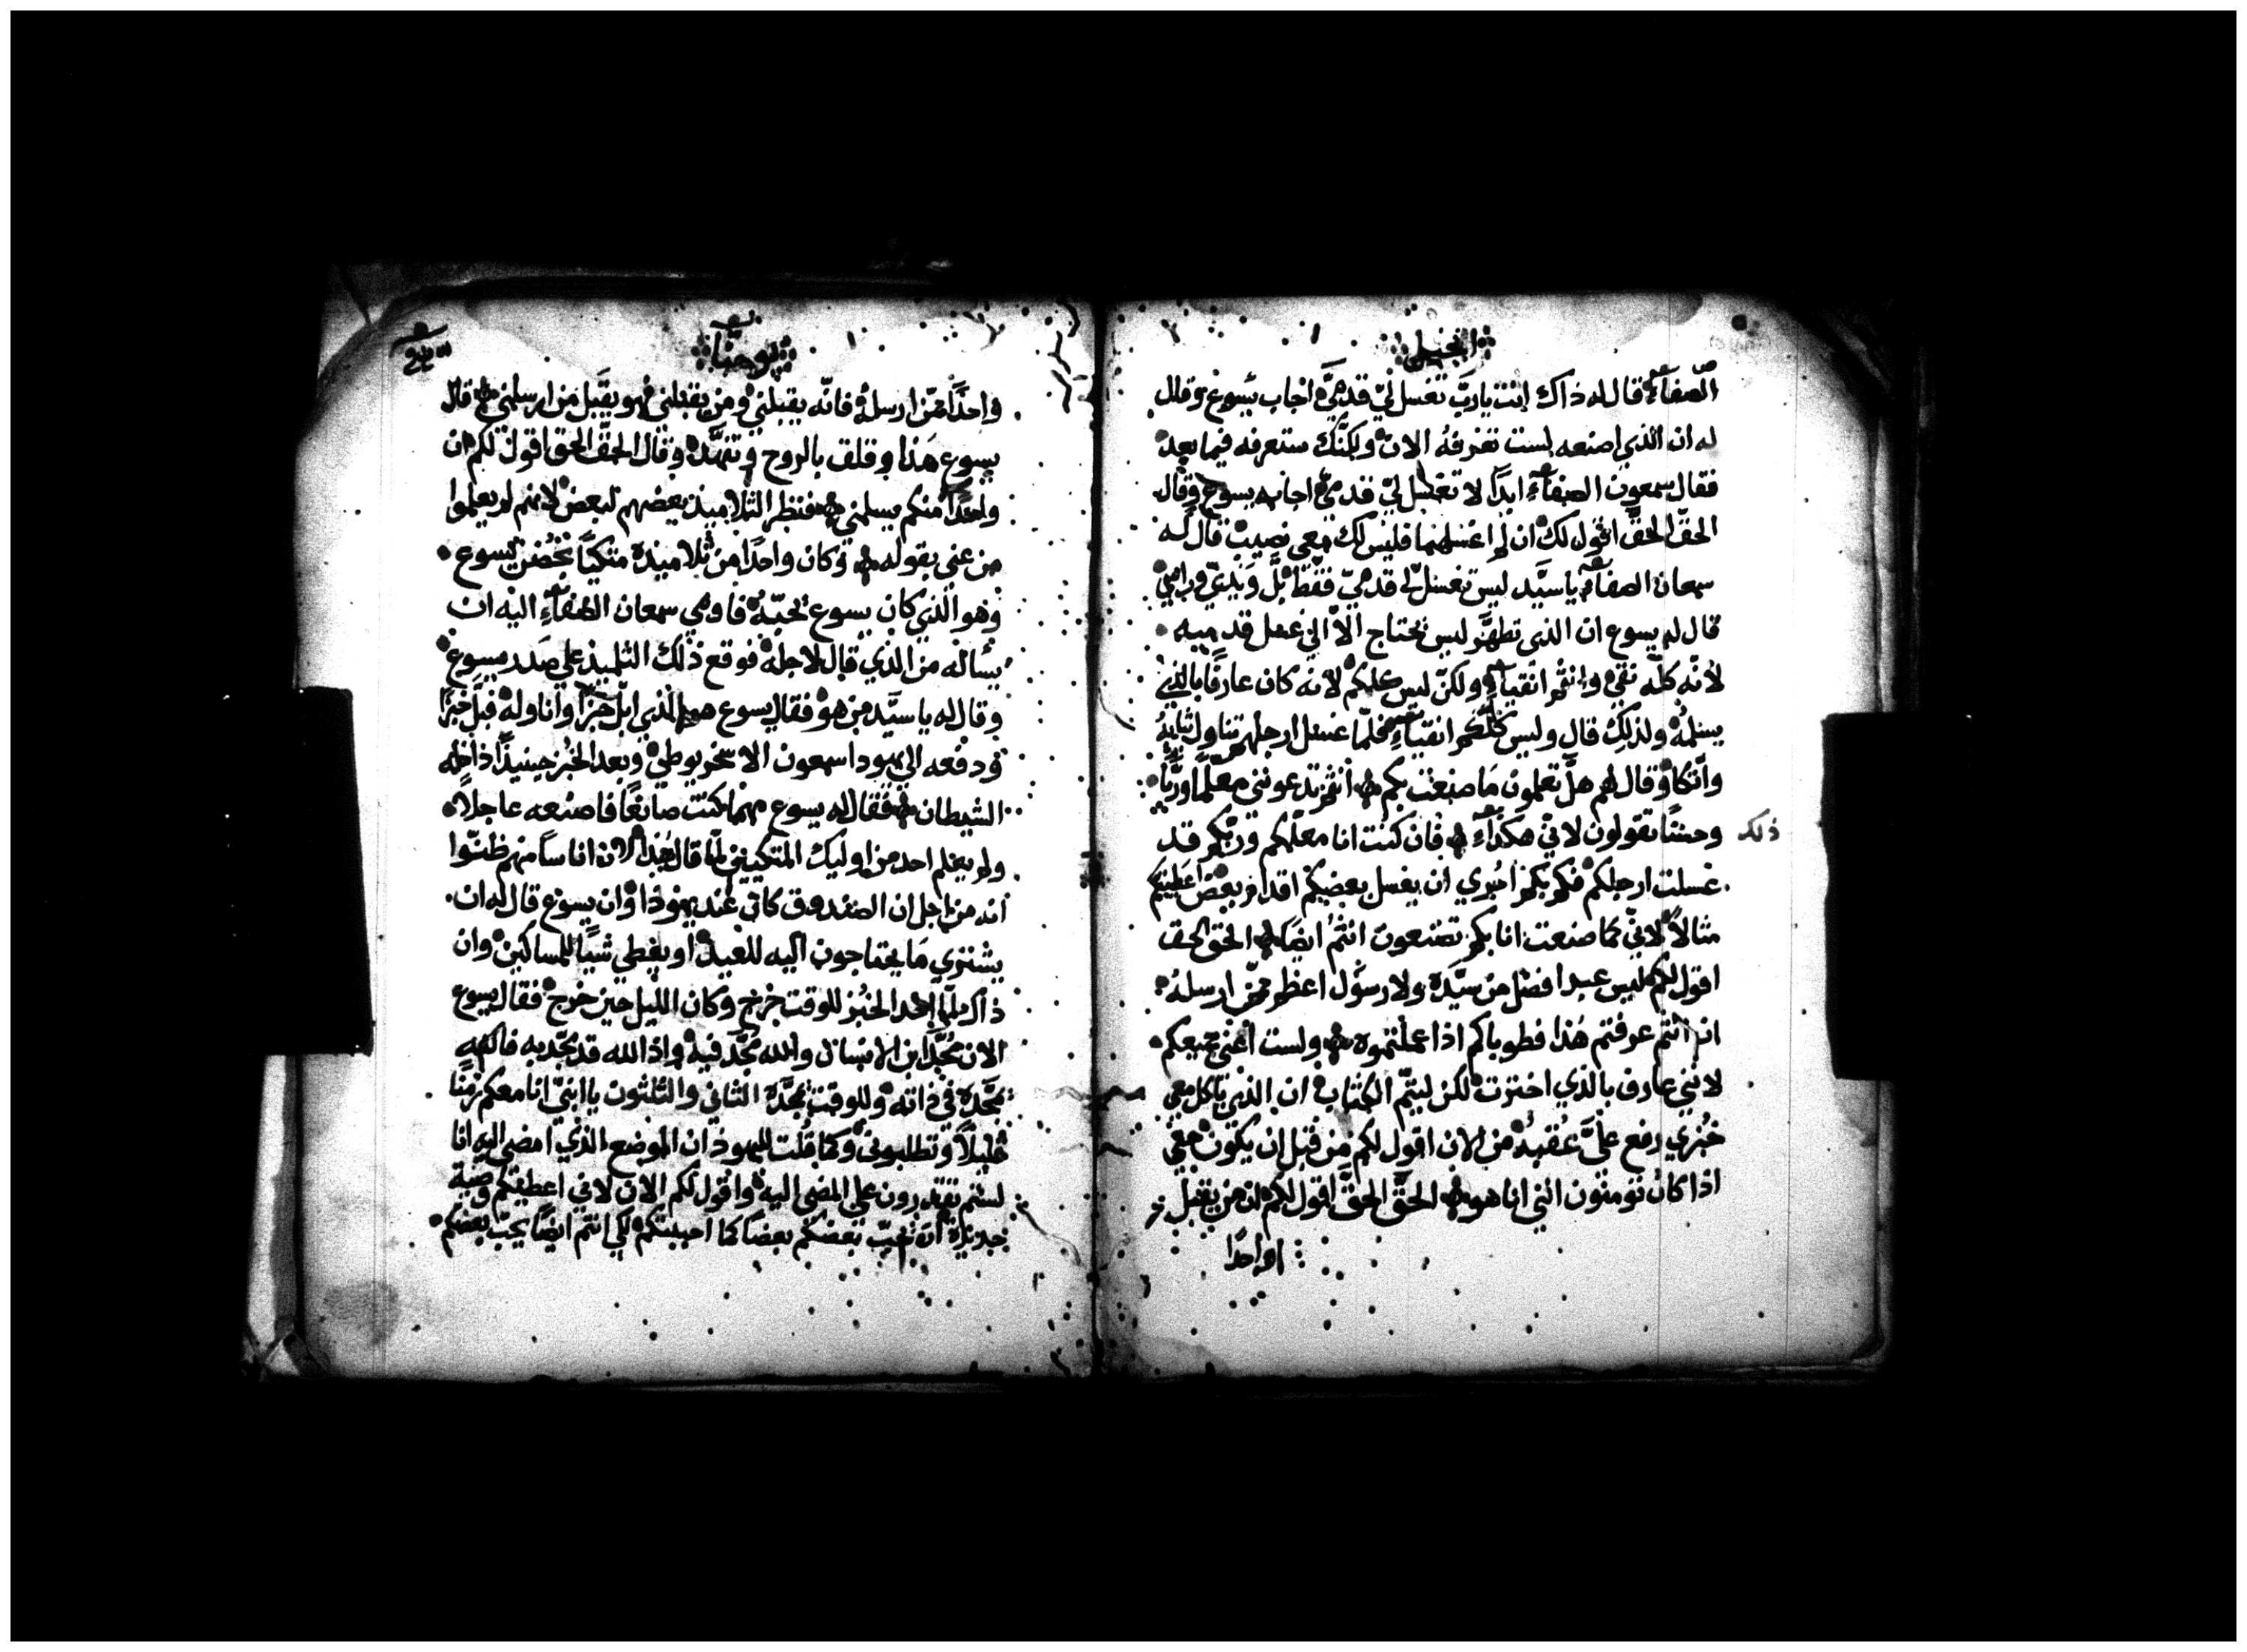 انجيل
الصفاء قال له ذاك انت يا ربّ تغسل ليّ قدميّ اجاب يسوع وقال
له ان الذي اصنعه لست تعرفه الان ولكنّك ستعرفه فيما بعد
فقال سمعون الصفاء ابداً لا تغسل ليّ قدميّ اجابه يسوع وقال
الحقّ الحقّ اقول لك ان لم اغسلهما فليس لك معي نصيب قال له
سمعان الصفاء يا سيّد ليس تغسل لي قدميّ فقط بلّ ويديّ وراسي
قال له يسوع ان الذي تطهّر ليس يحتاج الاّ الي غسل قدميه
لانّه كلّه نقي وانتم انقياء ولكنّ ليس كلكم لانه كان عارفاً بالذي
يسلمه ولذلك قال وليس كلّكم انقياء فلمّا غسل ارجلهم تناول ثيابه
واتّكا وقال لهم هلّ تعلمون ما صنعت بكم انتم تدعونني معلّماً وربّاً
وحسناً تقولون لاني هكذاء فان كنت انا معلّمكم وربّكم قد
ذلك
غسلت ارجلكم فكم بكم احري ان يغسل بعضكم اقدام بعض اعطيتكم
مثالاً لانّي كما صنعت انا بكم تصنعون انتم ايضاً الحق الحق
اقول لكم ليس عبد افضل من سيّده ولا رسول اعظم ممّن ارسله
ان انتم عرفتم هذا فطوباكم اذا عملتموه ولست اعني جميعكم
لانني عارف بالذي اخترت لكن ليتمّ الكتاب ان الذي ياكل معي
خبزي رفع عليّ عقبه من الان اقول لكم من قبل ان يكون حتي
اذا كان تومنون انني انا هو الحقّ الحقّ اقول لكم ان من يقبل
واحداً
يوحنّا
واحداً ممّن ارسله فانّه يقبلني ومن يقبلني فهو يقبل من ارسلني قال
يسوع هذا وقلق بالروح وتنهّد وقال الحقّ الحق اقول لكم ان
واحداً منكم يسلمني فنظر التلاميذ بعضهم لبعض لانهم لم يعلموا
من عني بقوله وكان واحداً من تلاميذه متكياً بحضن يسوع
وهو الذي كان يسوع يحبّه فاومي سمعان الصفاء اليه ان
يسأله من الذي قال لاجله فوقع ذلك التلميذ علي صدر يسوع
وقال له يا سيّد من هو فقال يسوع هو الذي ابلّ خبزاً واناوله فبلّ خبزاً
ودفعه الي يهودا سمعون الاسخريوطي وبعد الخبز حينيذٍ داخله
الشيطان فقال له يسوع مهما كنت صانعاً فاصنعه عاجلاً
ولم يعلم احد من اوليك المتكيين لمّا قال هذا لان اناساً منهم ظنّوا
انه من اجل ان الصندوق كان عند يهوذا وان يسوع قال له ان
يشتري ما يحتاجون اليه للعيد او يعطي شياً للمساكين وان
ذاك لمّا اخذ الخبز للوقت خرج وكان الليل حين خرج فقال يسوع
الان مُجّد ابن الانسان والله مُجّد فيه واذا الله قد مجّد به فالله
يمجّده في ذاته وللوقت يمجّده الثاني والثلثون يا ابنيّ انا معكم زمناً
قليلاً وتطلبوني وكما قلت لليهوذ ان الموضع الذي امضي اليه انا
لستم تقتدرون علي المضي اليه واقول لكم الان لاني اعطيكم وصيّة
جديدة ان يحبّ بعضكم بعضاً كما احببتكم لكي انتم ايضاً يحبّ بعضكم